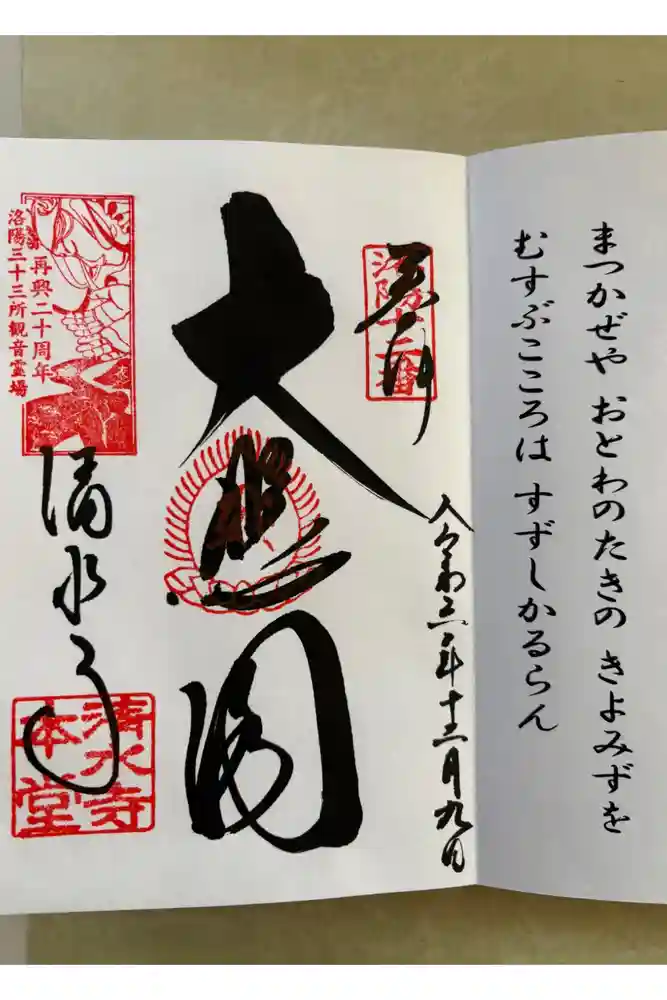 まつかぜや おとわのたきの きよみずを
むすぶこころは すずしかるらん
奉拝
洛陽十二番
令和六年十二月九日
大悲閣
再興二十周年
洛陽三十三所観音霊場
清水寺
清水寺
本堂